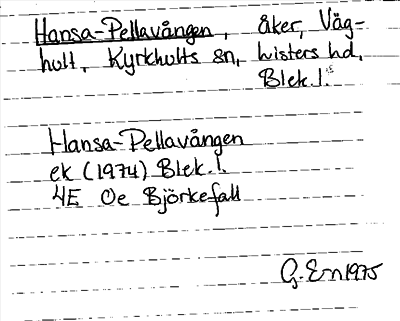 Hansa-Pellavången, åker, Väg-
hult, Kyrkhults sn, Listers hd,
Blek.l.
Hansa-Pellavången
ek (1974) Blek.l.
4E 0e Björkefall
G. En 1975